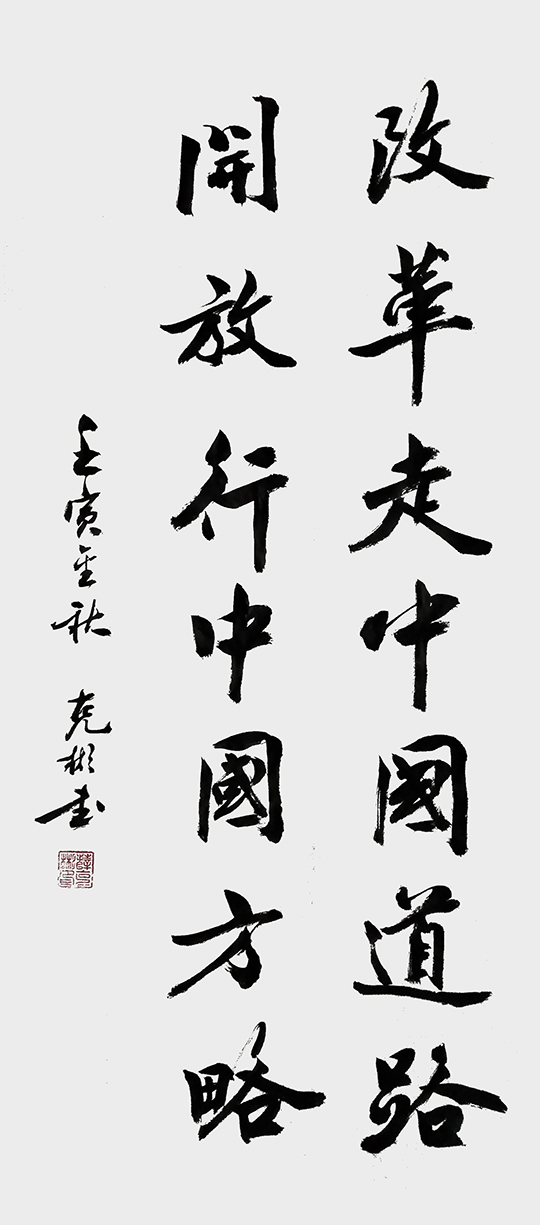 改革走中國道路
開放行中國方略
壬寅金秋 克彬书